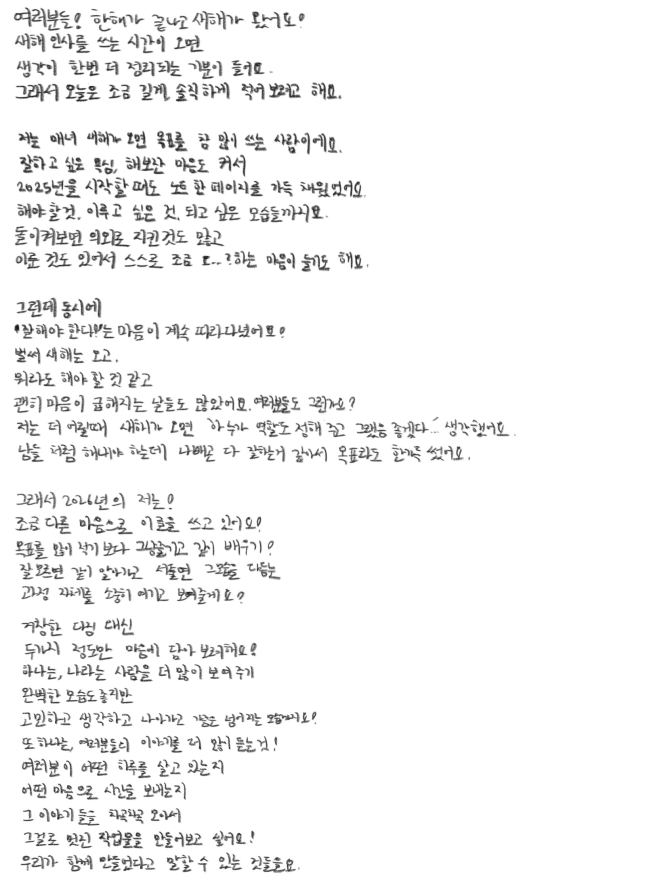 여러분들! 한해가 끝나고 새해가 왔어요!
새해 인사를 쓰는 시간이 오면
생각이 한번 더 정리되는 기분이 들어요.
그래서 오늘은 조금 길게, 솔직하게 적어보려고 해요.
저는 매년 새해가 오면 목표를 참 많이 쓰는 사람이에요.
잘하고 싶은 욕심, 해보잔 마음도 커서
2025년을 시작할 때도 노트 한 페이지를 가득 채웠었어요.
해야 할 것, 이루고 싶은 것, 되고 싶은 모습들까지요.
돌이켜보면 의외로 지킨것도 많고
이룬 것도 있어서 스스로 조금 오...?하는 마음이 들기도 해요.
그런데 동시에
'잘해야 한다!'는 마음이 계속 따라다녔어요!
벌써 새해는 오고,
뭐라도 해야 할 것 같고
괜히 마음이 급해지는 날들도 많았어요. 여러분들도 그런가요?
저는 더 어릴때 새해가 오면 누가 역할도 정해 주고 그랬음 좋겠다... 생각했어요.
남들 처럼 해내야 하는데 나빼곤 다 잘하는거 같아서 목표라도 한가득 썼어요.
그래서 2026년의 저는!
조금 다른 마음으로 이 글을 쓰고 있어요!
목표를 많이 적기 보다 그냥즐기고 같이 배우기!
잘 모르면 같이 알아가고 서툴면 그모습을 다듬는
과정 자체를 소중히 여기고 보여줄게요?
거창한 다짐 대신
두가지 정도만 마음에 담아 보려해요!
하나는, 나라는 사람을 더 많이 보여주기
완벽한 모습도좋지만
고민하고 생각하고 나아가고 가끔은 넘어지는 모습까지요!
또 하나는, 여러분들의 이야기를 더 많이 듣는 것!
여러분이 어떤 하루를 살고 있는지
어떤 마음으로 시간을 보내는지
그 이야기들을 차곡차곡 모아서
그걸로 멋진 작업물을 만들어보고 싶어요!
우리가 함께 만들었다고 말할 수 있는 것들을요.